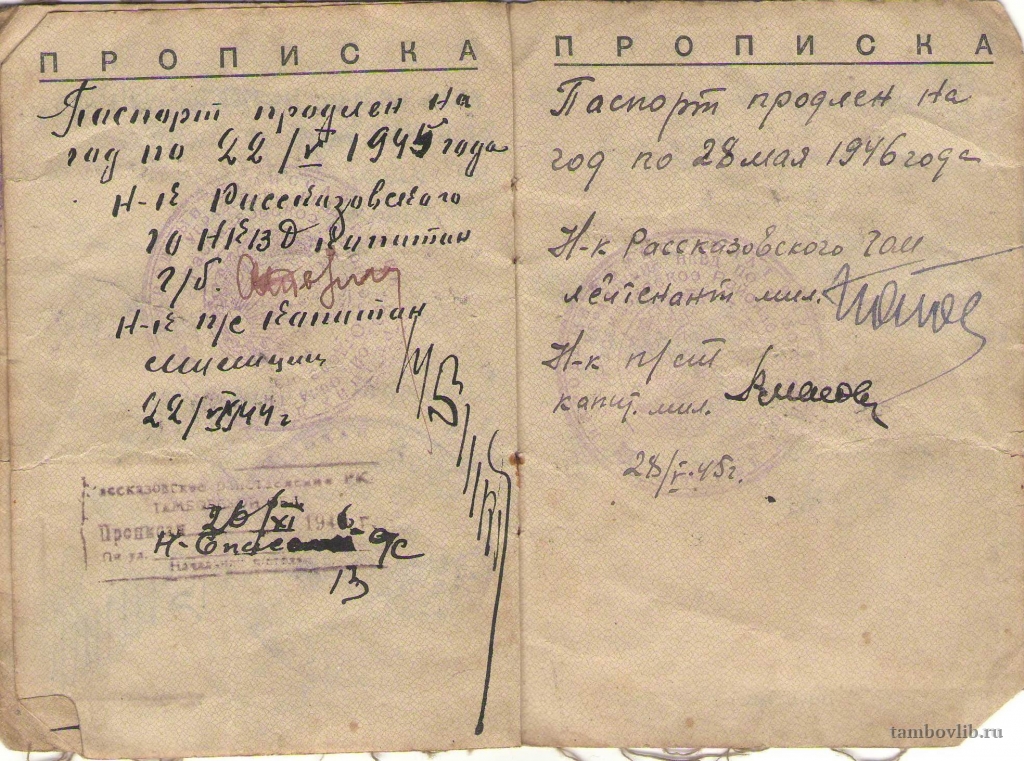 ПРОПИСКА
Паспорт продлен на
год по 22/V 1945 года
Н-к Рассказовского
го НКВД Капитан
г/б.
Н-к п/с Капитан
милиции
22/ 44 г
Рассказовское отделение РК
Прописан 26/XI 1946 г.
По ул. Н-Спасс
13
ПРОПИСКА
Паспорт продлен на
год по 28 мая 1946 года
Н-к Рассказовского
лейтенант мил.
Н-к п/ст
капит. мил.
28/V-45г.
tambovlib.ru